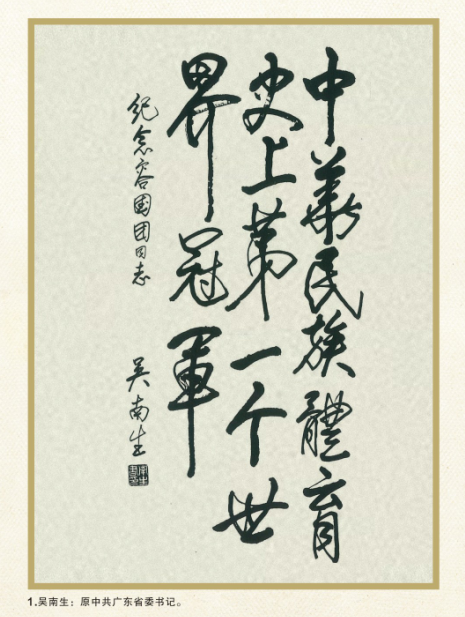 中華民族體育
史上第一个世
界冠軍
纪念容国团同志
吴南生
1.吴南生：原中共广东省委书记。